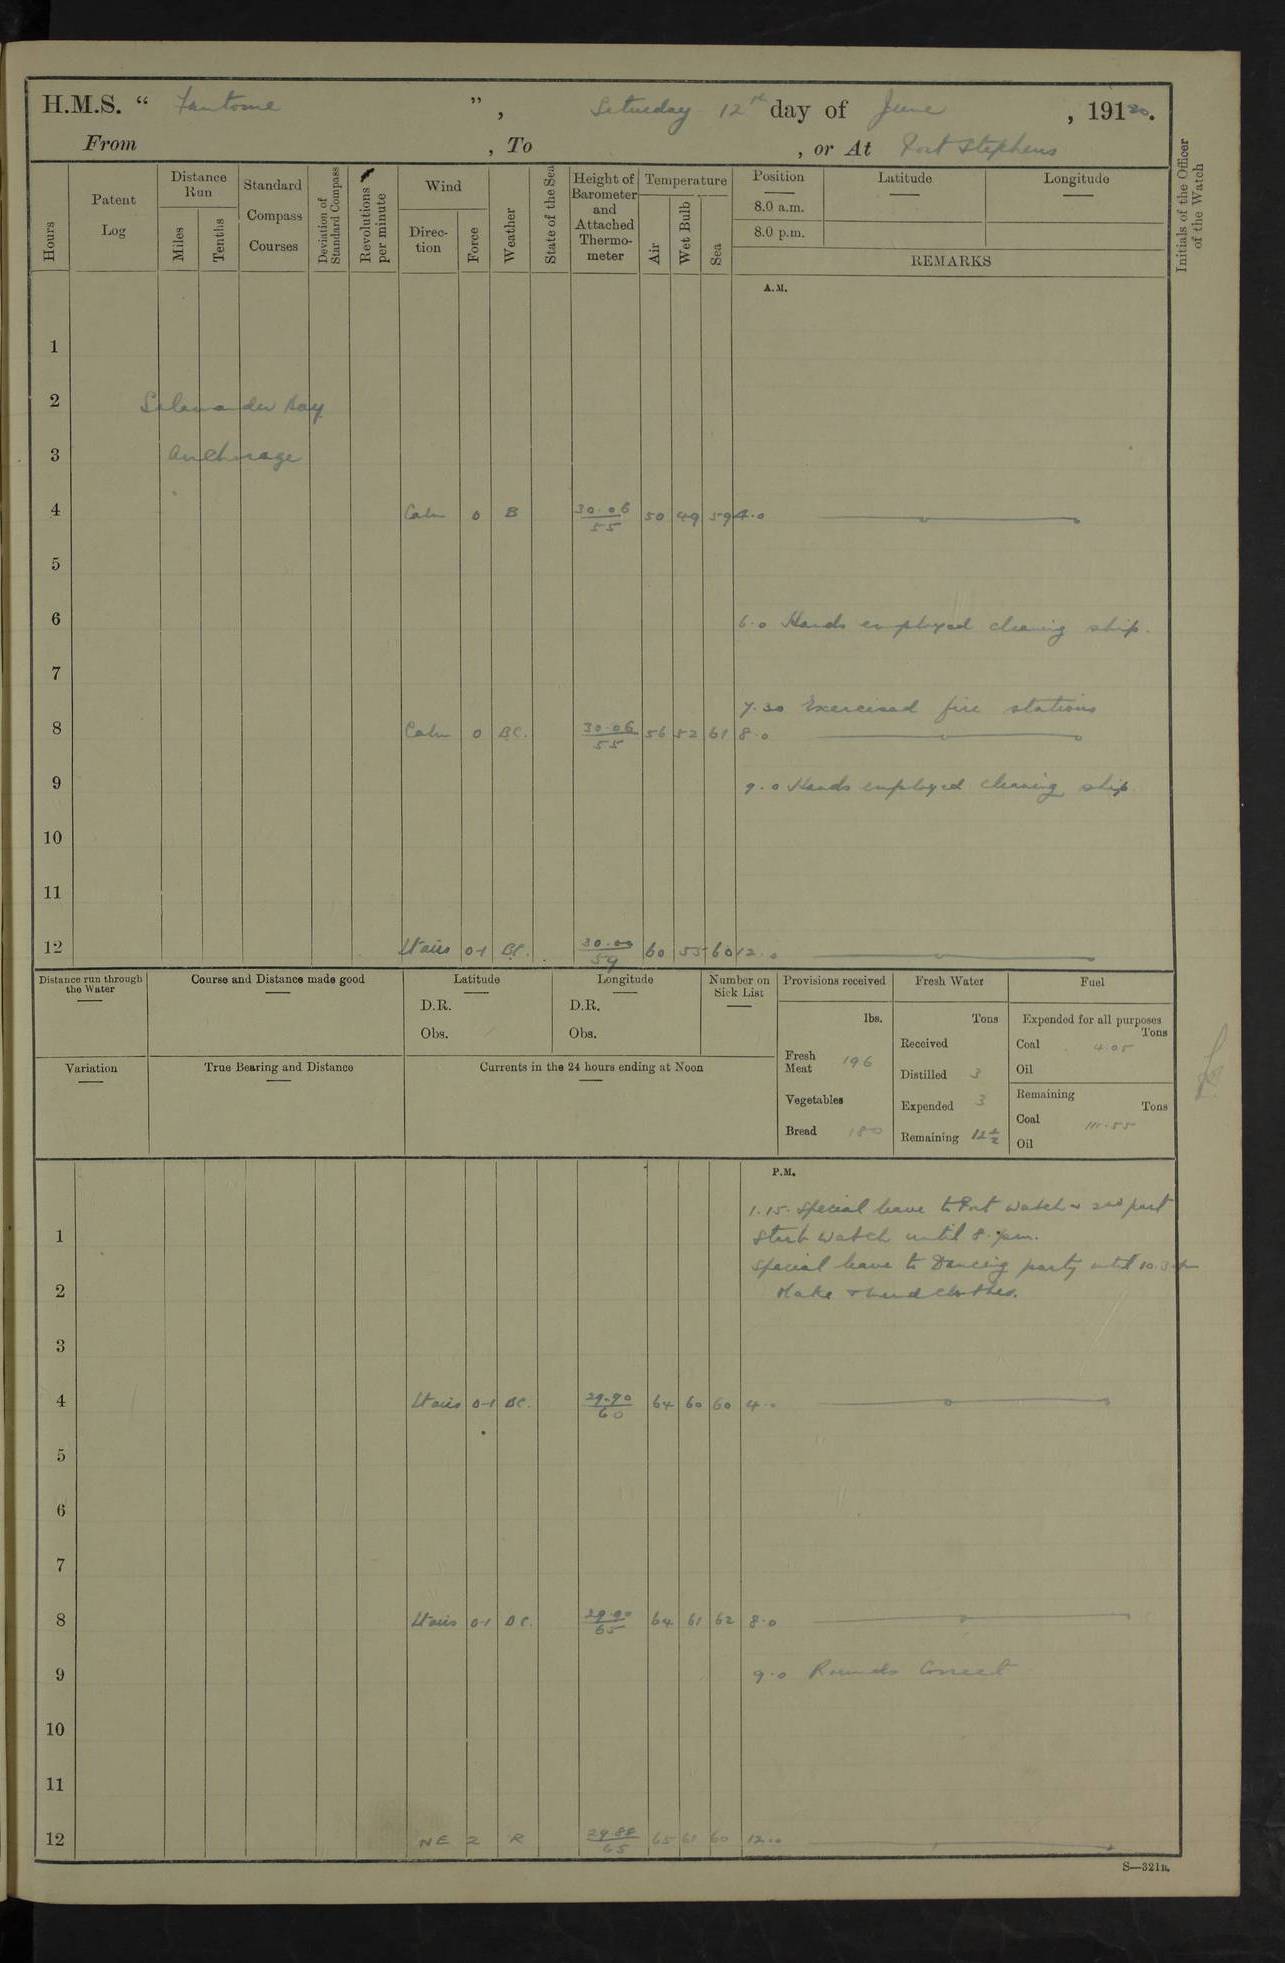 H.M.S. “ Fantome ” , Saturday 12th day of June , 19120.
From , To , or At Port Stephens
Hours
Patent Log
Distance Run
Miles
Tenths
Standard Compass Courses
Deviation of Standard Compass
Revolutions per minute
Wind
Direc-tion
Force
Weather
State of the Sea
Height of Barometer and Attached Thermo-meter
Temperature
Air
Wet Bulb
Sea
Position
8.0 a.m.
8.0 p.m.
Latitude
Longitude
REMARKS
Initials of the Officer of the Watch
A.M.
1
2 Salamander Bay
3 Anchorage
4 Calm 0 B 30.06 55 50 49 59 4.0
5
6 6.0 Hands employed cleaning ship.
7
7.30 Exercised fire stations
8 Calm 0 BC. 30.06 55 56 52 61 8.0
9 9.0 Hands employed cleaning ship
10
11
12 Lt airs 0-1 BC. 30.00 59 60 55 60 12.0
Distance run through the Water
Course and Distance made good
Latitude
D.R.
Obs.
Longitude
D.R.
Obs.
Number on Sick List
Provisions received
lbs.
Fresh Meat 196
Vegetables
Bread 180
Fresh Water
Tons
Received
Distilled 3
Expended 3
Remaining 12½
Fuel
Expended for all purposes
Tons
Coal 4.05
Oil
Remaining
Tons
Coal 111.55
Oil
Variation
True Bearing and Distance
Currents in the 24 hours ending at Noon
P.M.
1.15. Special leave to Port Watch & 2nd part
1 Starb Watch until 8. pm.
Special leave to Dancing party until 10.3
2 Make & Mend clothes.
3
4 Lt airs 0-1 BC. 29.90 60 64 60 60 4.0
5
6
7
8 Lt airs 0-1 BC. 29.90 65 64 61 62 8.0
9 9.0 Rounds Correct
10
11
12 NE 2 R 29.88 65 65 61 60 12.0
S—321B.